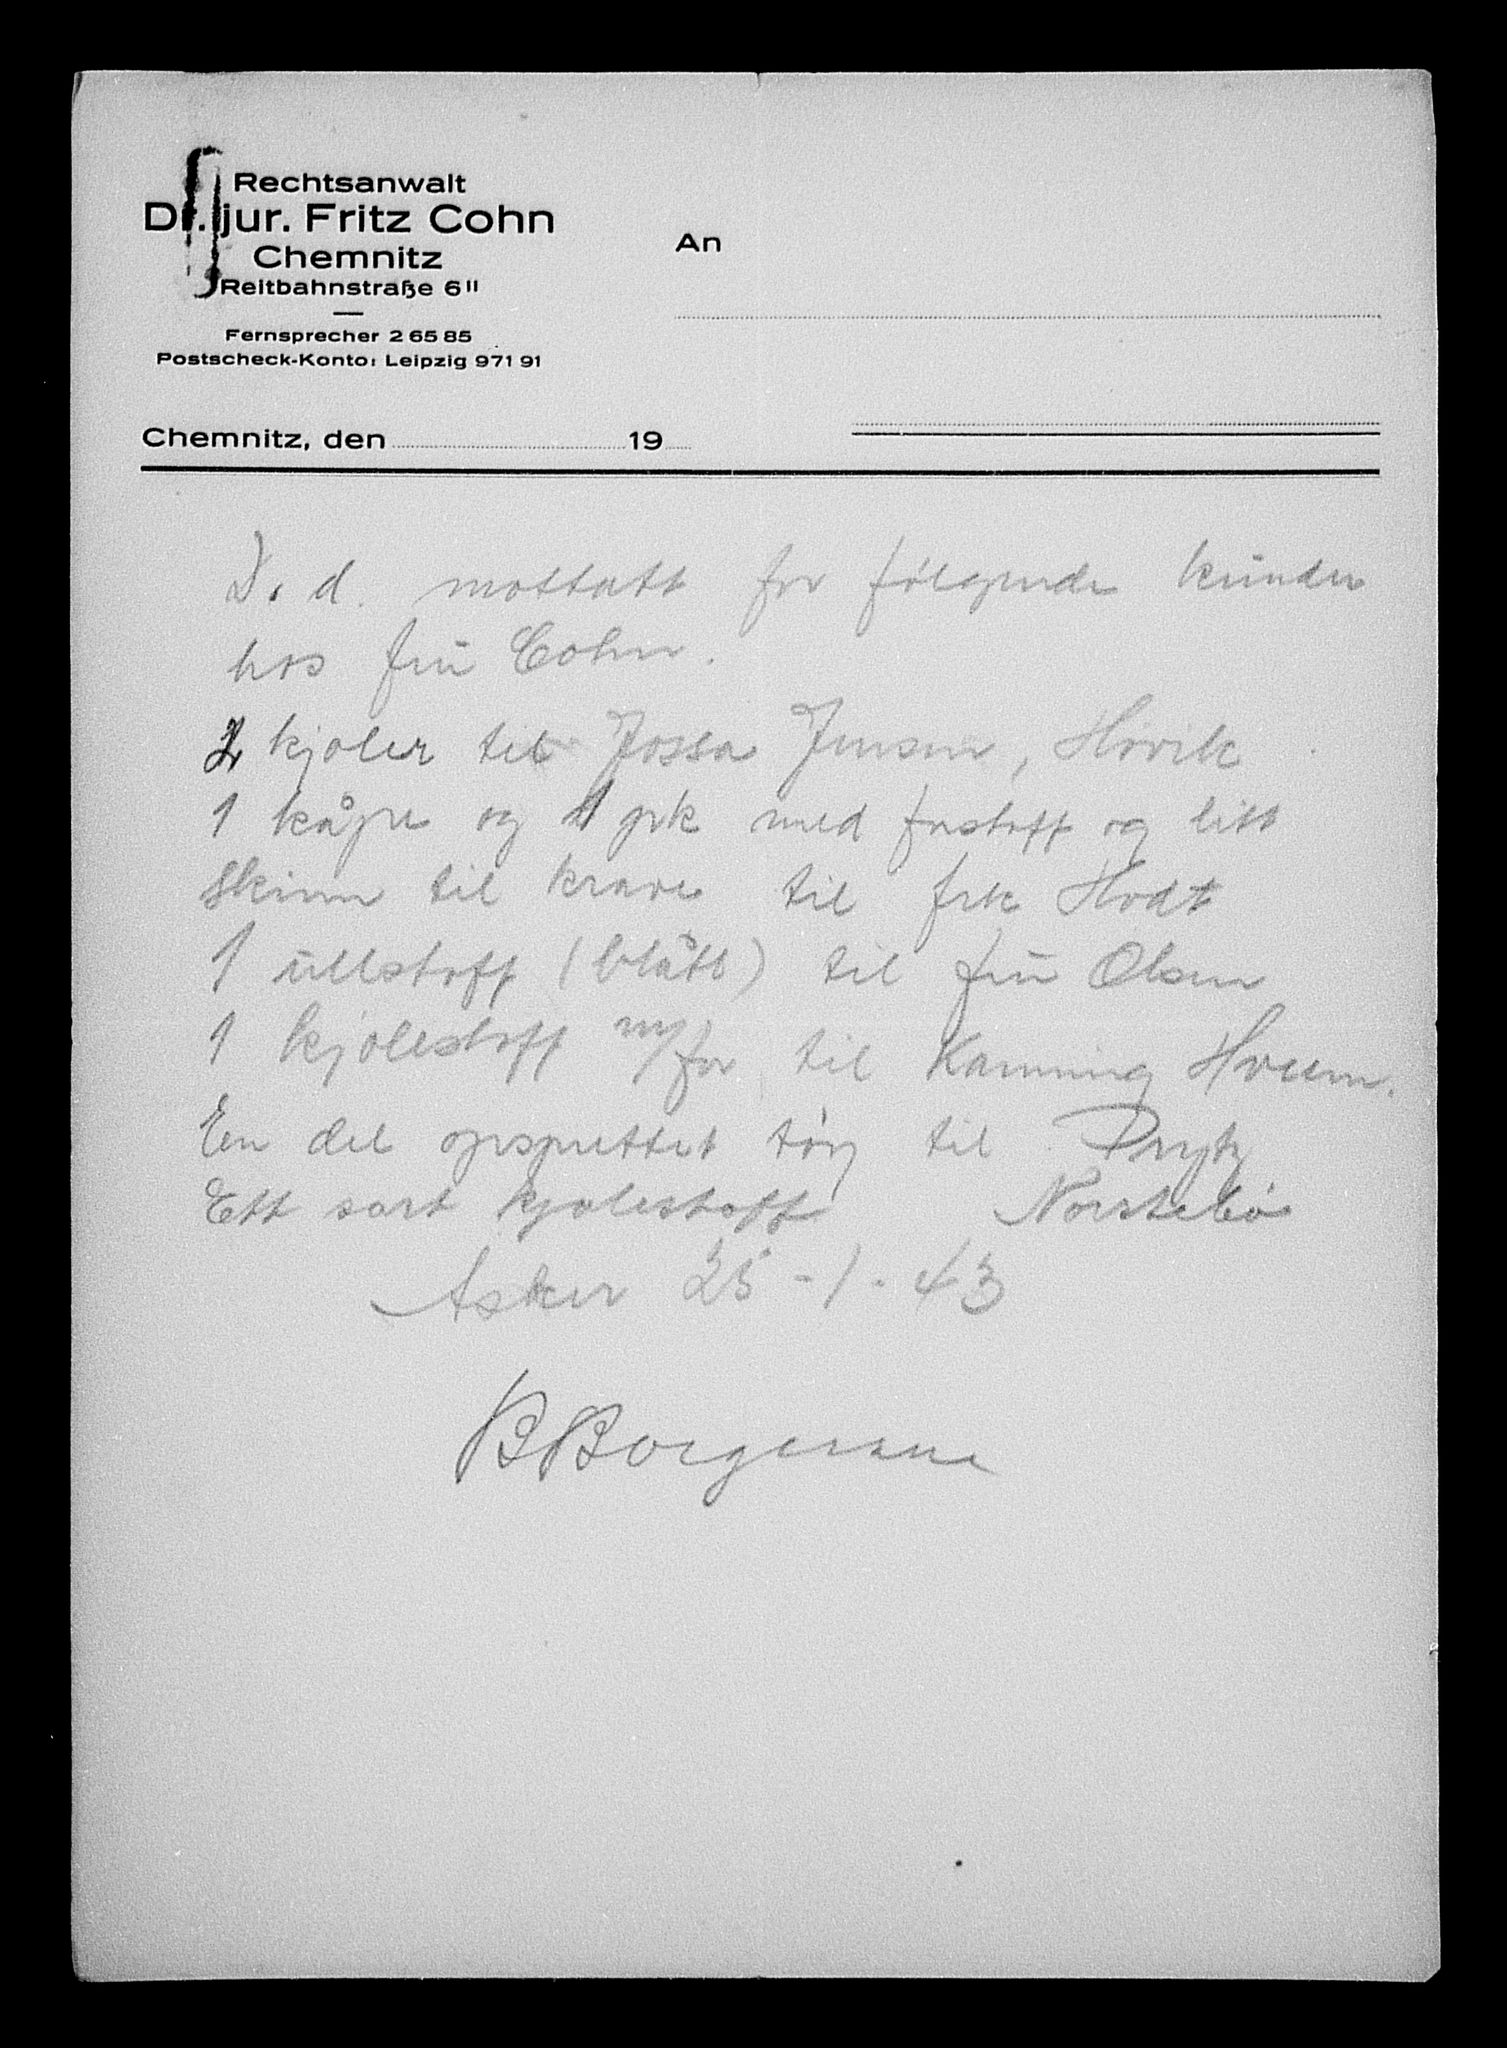 Rechtsanwalt
Dr. jur. Fritz Cohn
Chemnitz
Reitbahnstraße 6 II
Fernsprecher 2 65 85
Postscheck-Konto: Leipzig 971 91
An
Chemnitz, den 19
D. d. mottatt for følgende kunder
hos fru Cohn.
2 kjoler til Jossa Jensen, Høvik
1 kåpe og 1 pk med forstoff og litt
skinn til krave til frk Hodt
1 ullstoff (blått) til fru Olsen
1 kjolestoff m/for til Kamning Hvum.
En del opsprettet tøy til
Ett sort kjolestoff Norstebø
Asker 25-1-43